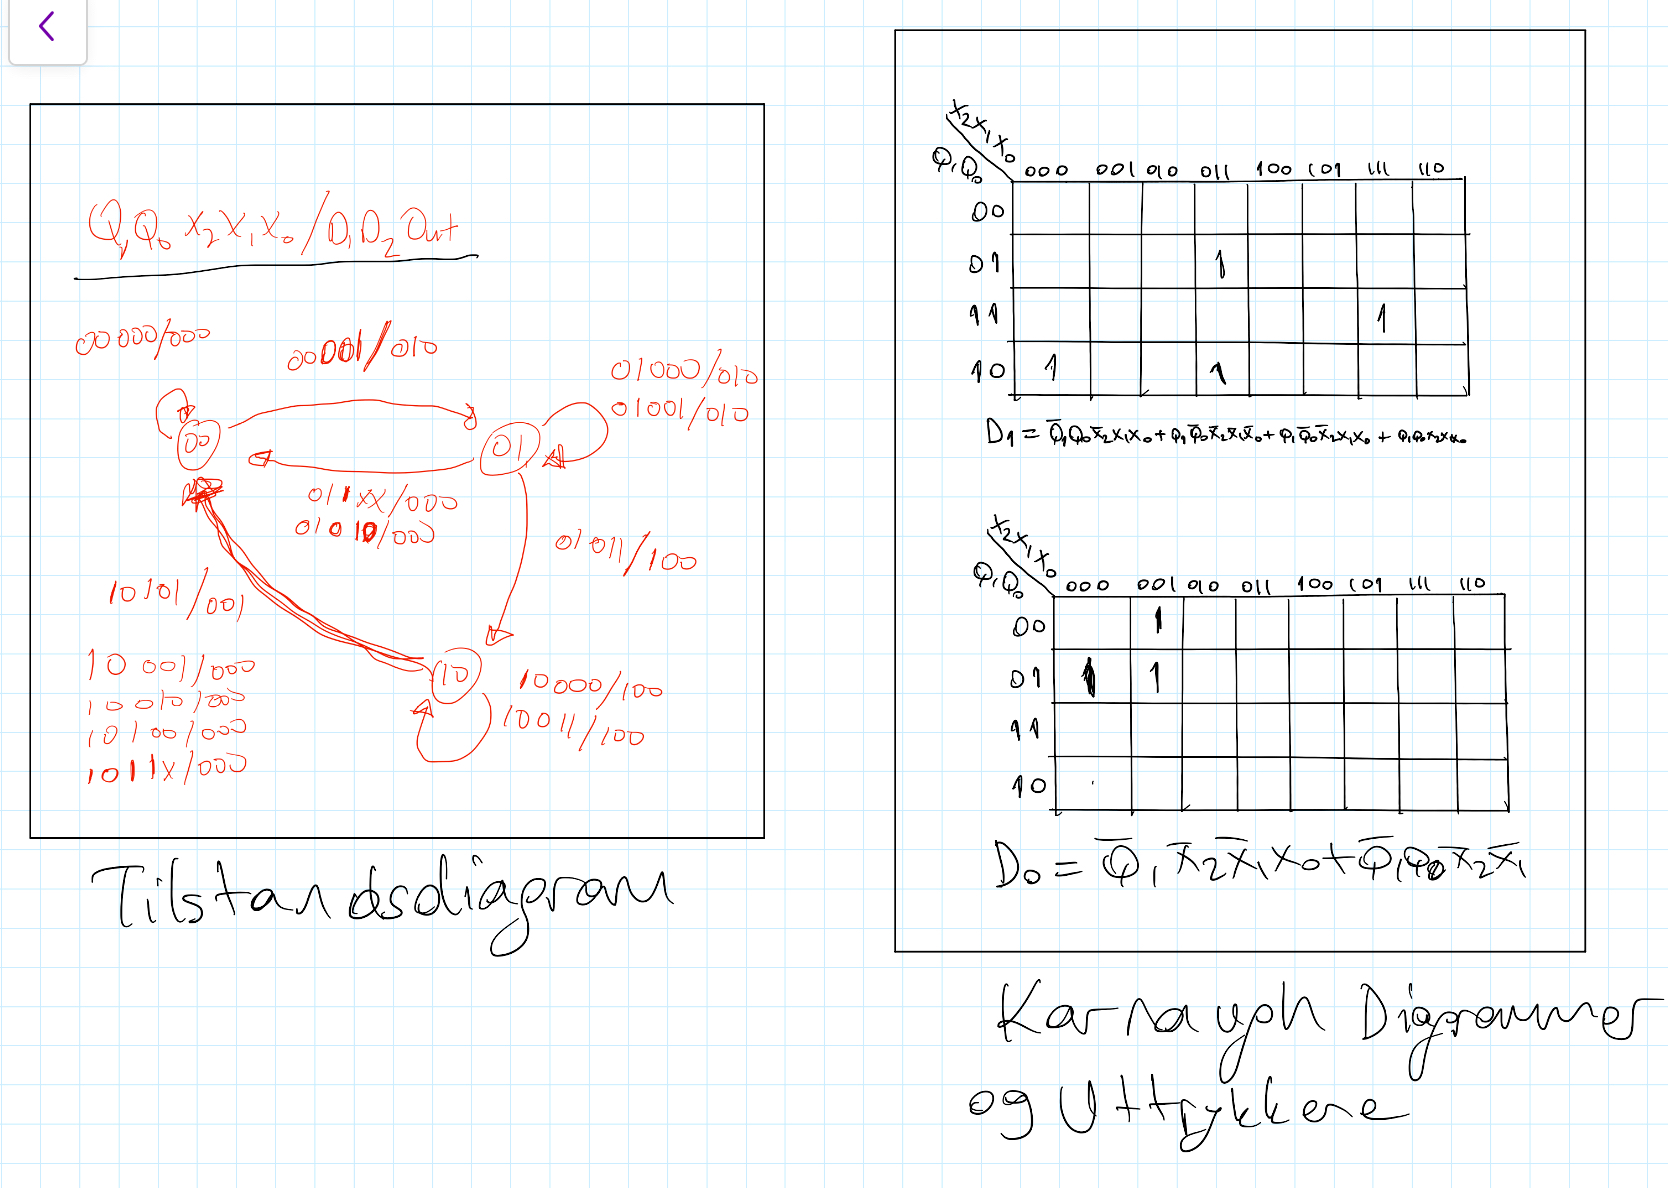 Q₁Q₀ X₂X₁X₀/D₁D₂ Out
00000/000
00001/010
01000/010
01001/010
00
01
011XX/000
01010/000
01011/100
10101/001
10
10001/000
10010/000
10100/000
1011X/000
10000/100
10011/100
Tilstandsdiagram
X₂X₁X₀
Q₁Q₀ 000 001 010 011 100 101 111 110
00
01 1
11 1
10 1 1
D₁ = Q̅₁Q₀X̅₂X₁X₀ + Q₁Q̅₀X̅₂X̅₁X̅₀ + Q₁Q̅₀X̅₂X₁X₀ + Q₁Q₀X₂X₁X₀
X₂X₁X₀
Q₁Q₀ 000 001 010 011 100 101 111 110
00 1
01 1 1
11
10
D₀ = Q̅₁X̅₂X̅₁X₀ + Q̅₁Q₀X̅₂X̅₁
Karnaugh Digrammer
og Uttrykkene